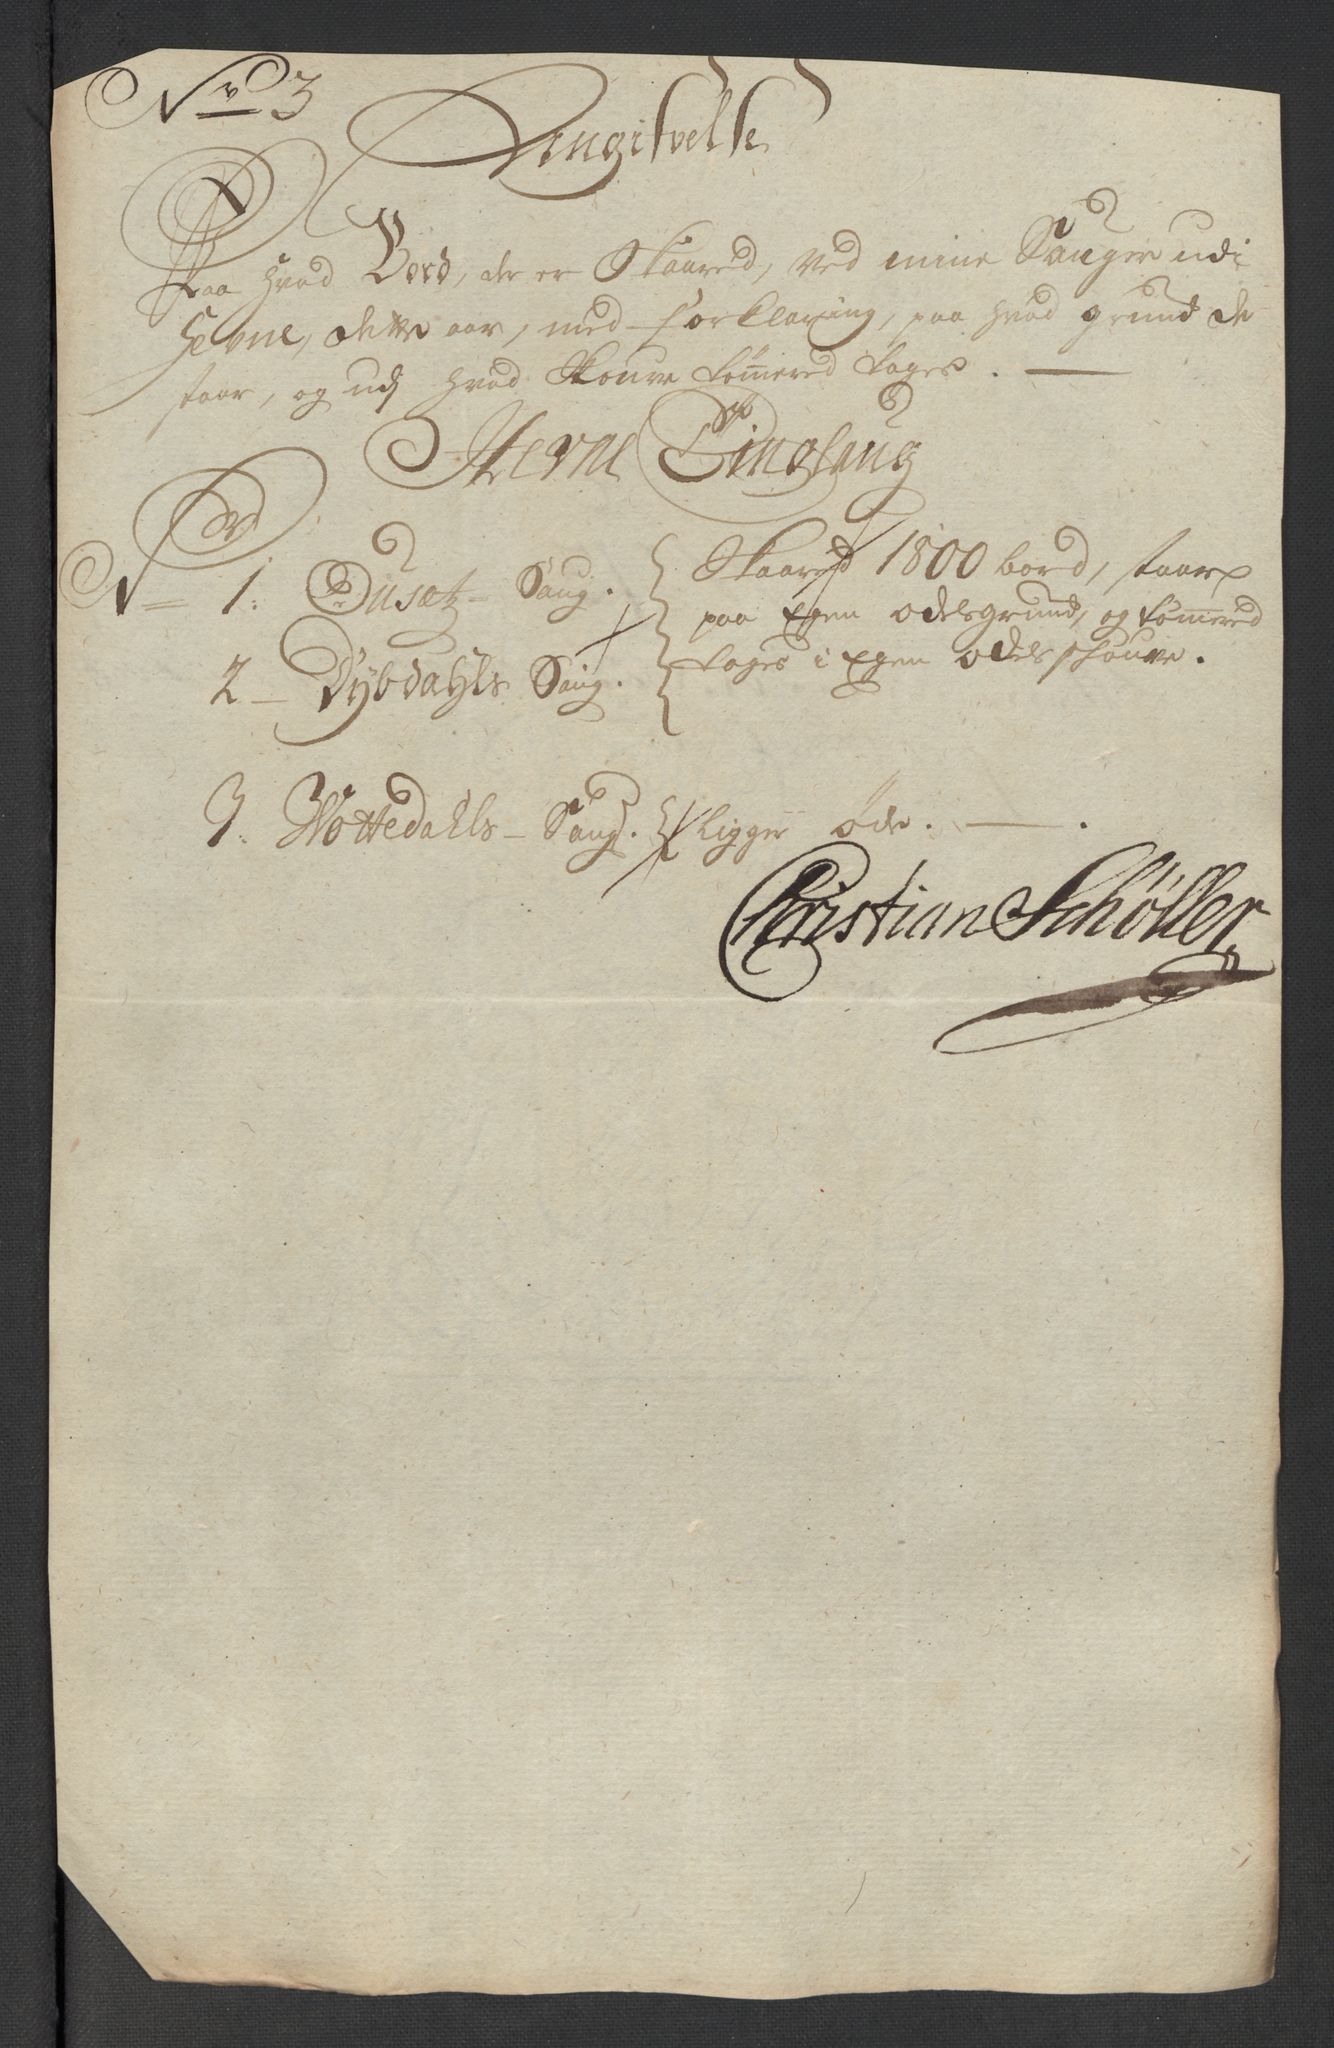 No 3
Angifvelse
Paa hvad Bord, der er Skaared, ved mine Sauger udi
Hevne, dette aar, med forklaring, paa hvad grund de
staar, og udj hvad Skouve tømered tages.
Hevne Tinglaug
No 1. Dusetz Saug.
2 Dybdahls Saug.
Skaared 1800 bord, staar
paa Egen odelsgrund, og tømered
tages i Egen odels skouve.
3. Wottedahls Saug. ligger øde.
Christian Schøller